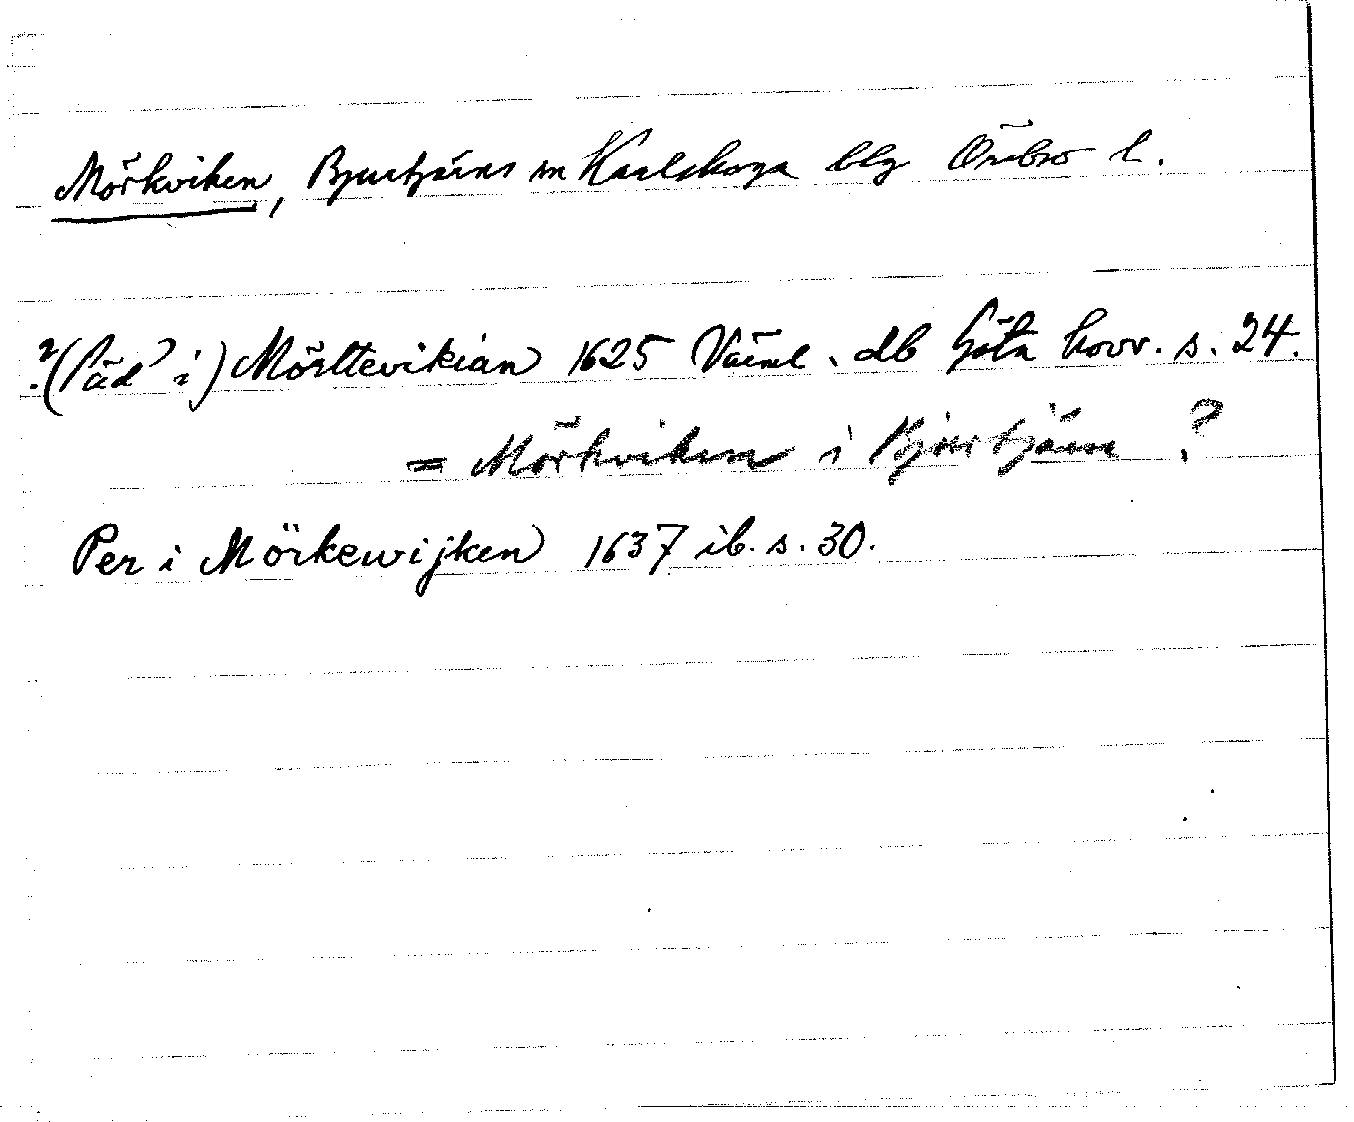 Mörkviken, Bjurtjärns sn Karlskoga blg Örebro l.
?(Päd i) Mörttevikian 1625 Värml. db Göta hovr. s. 24.
= Mörkviken i Bjurtjärn ?
Per i Mörkewijken 1637 ib. s. 30.